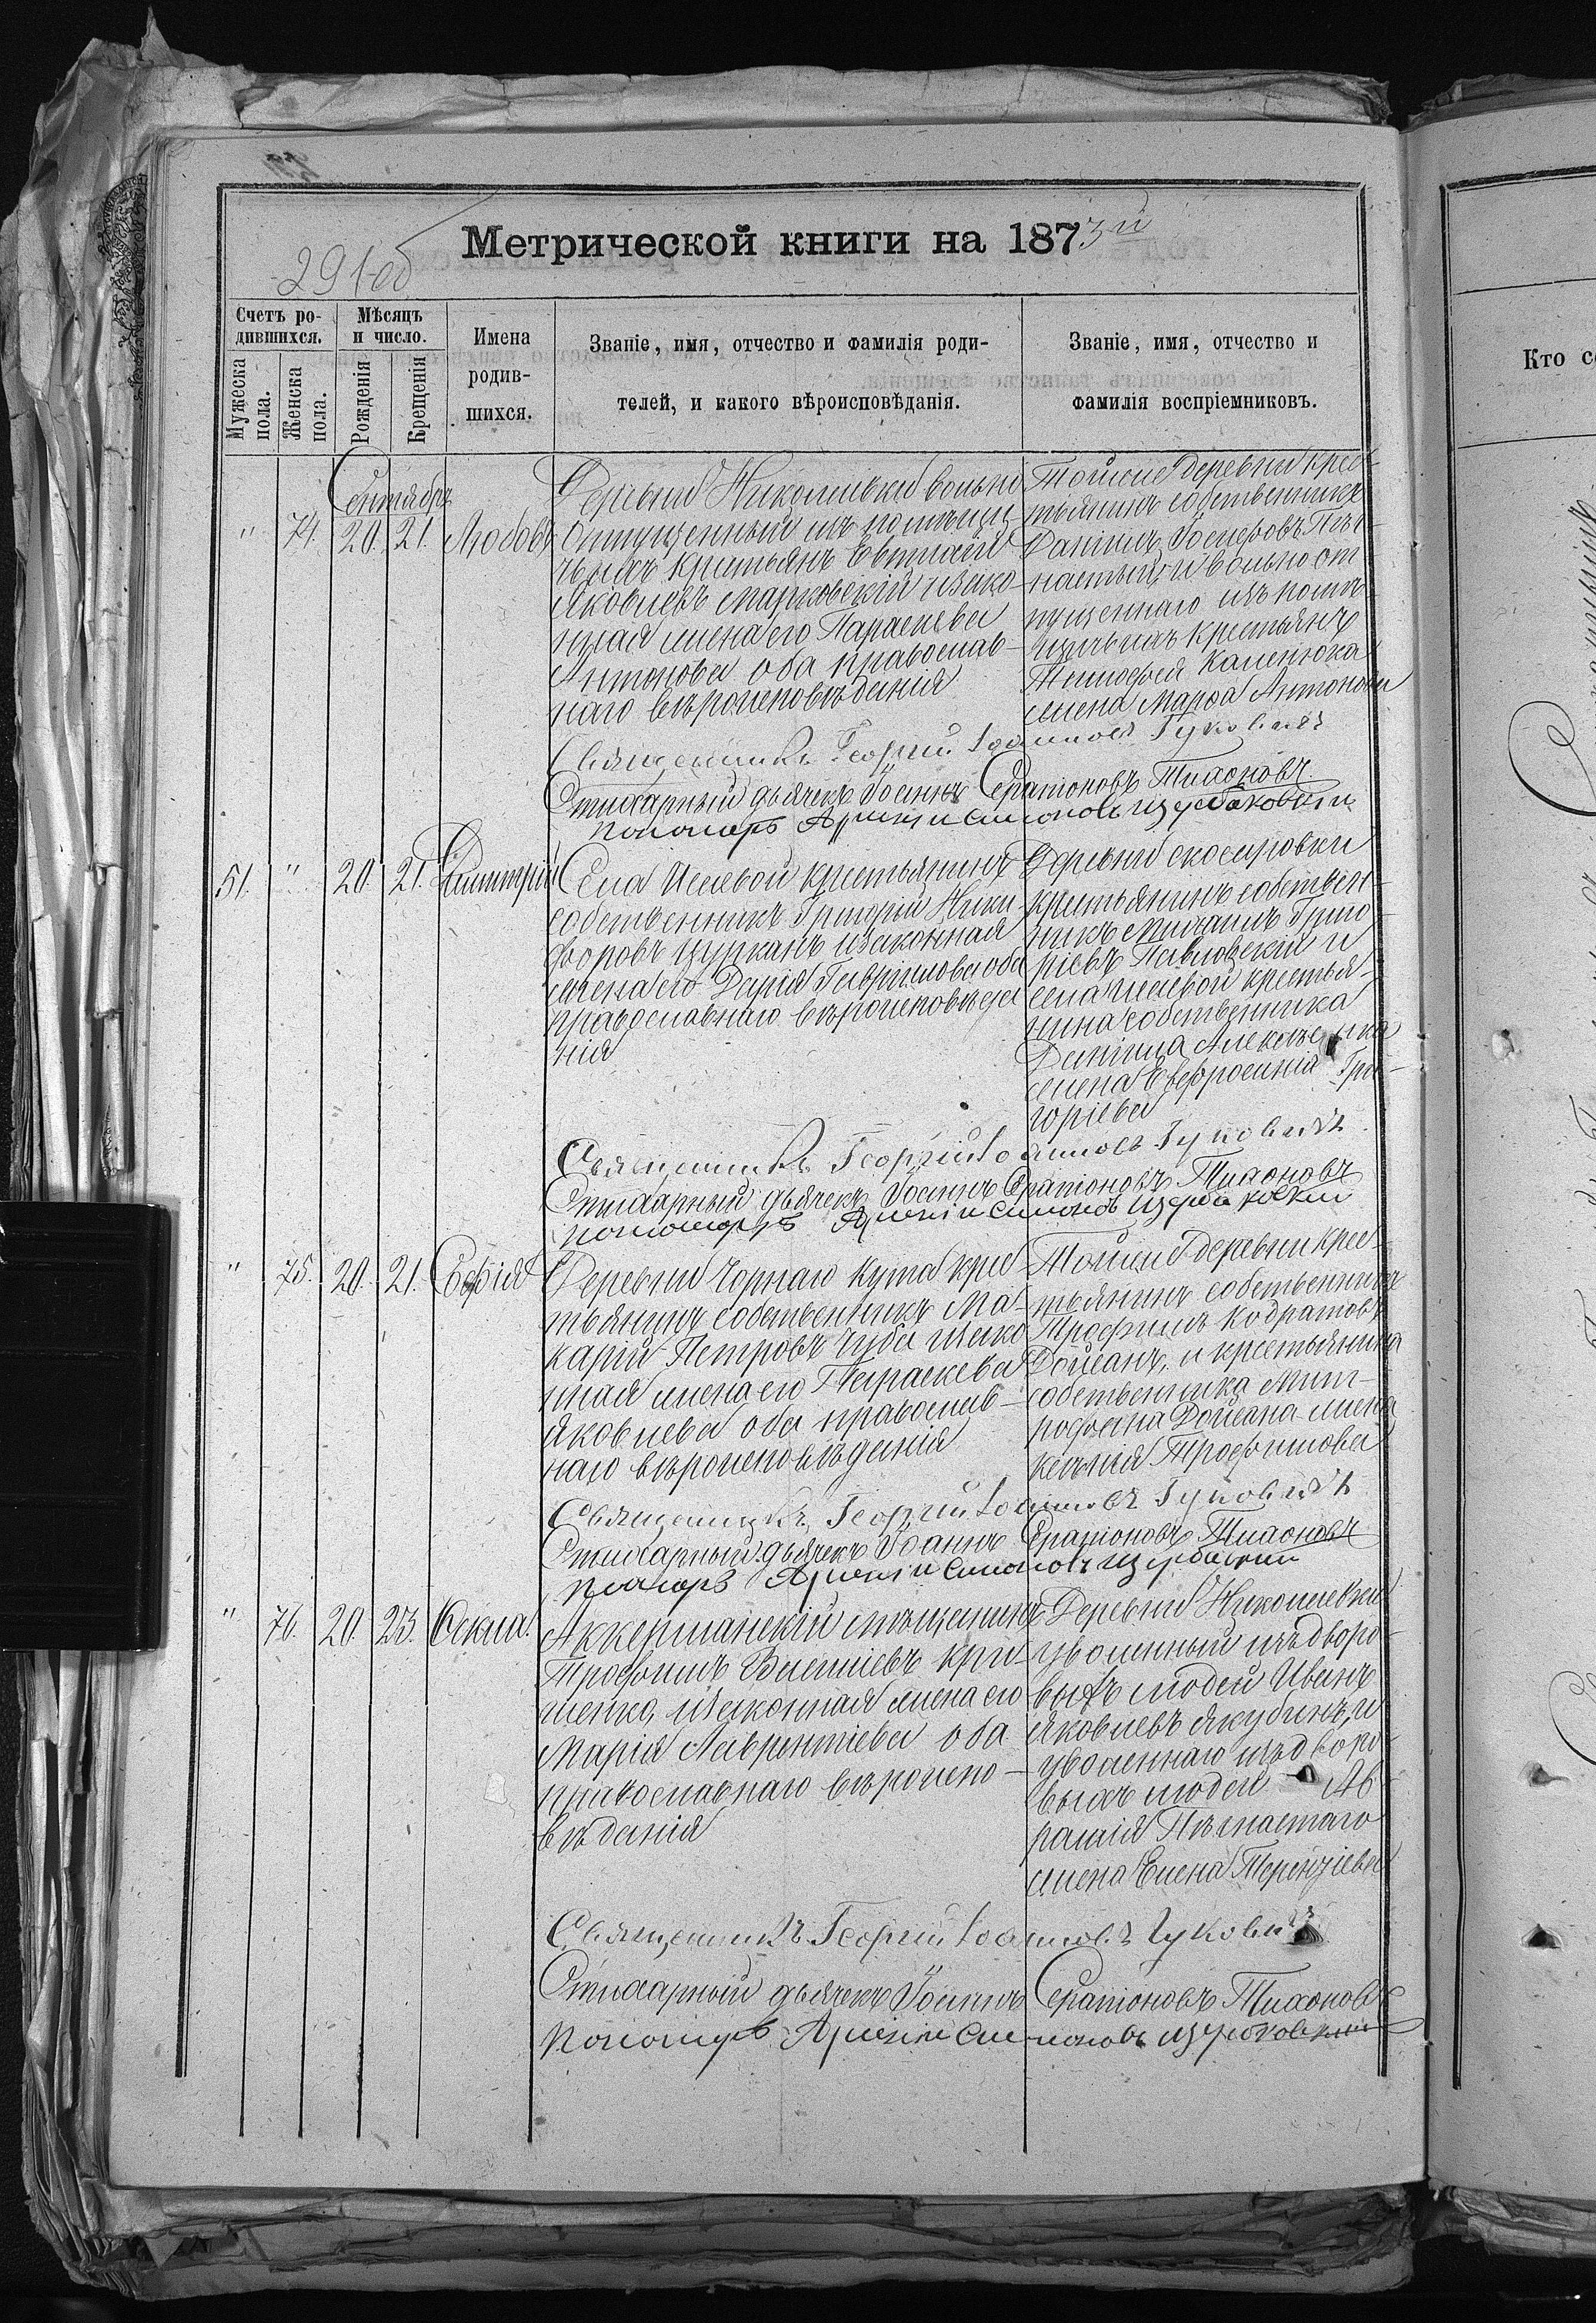 Метрической книги на 1873й
291 об
Счетъ ро-
дившихся.
Мѣсяцъ
и число.
Имена
родив-
шихся.
Званіе, имя, отчество и фамилія роди-
телей, и какого вѣроисповѣданія.
Званіе, имя, отчество и
фамилія воспріемниковъ.
Мужеска
пола.
Женска
пола.
Рожденія
Крещенія
Сентябръ
" 74. 20. 21. Любовъ
Деревни Николаевки вольно
отпущенный изъ помѣщи
чьихъ крестьянъ Евтихій
Яковлевъ Марковскій изако-
нная жена его Параскева
Антонова оба православ-
наго вѣроисповѣданія
Тойже деревни крес-
тьянинъ собственникъ
Даніилъ
и вольно от
пущеннаго изъ помѣ-
щичьихъ крестьянъ
Тимофея Каленюка
жена Марѳа Антонова
Священникъ Георгій Іоанновъ Гуковичъ
Стихарный дьячекъ Іоаннъ Серапіоновъ Тихоновъ
Пономарь Арсеній Симоновъ Щербаковскій
51. " 20. 21. Димитрій
Села Чечевой крестьянинъ
собственникъ Григорій Ники-
форовъ Цурканъ изаконная
жена его Дарія Гавріилова оба
православнаго вѣроисповѣда
нія
Деревни скосаровки
крестьянинъ собствен-
никъ Михаилъ Григо-
ріевъ Павловскій и
села чечевой крестья-
нина собственника
Даніила
жена Евфросинія Гри-
горіева
Священникъ Георгій Іоанновъ Гуковичъ
Стихарный дьячекъ Іоаннъ Серапіоновъ Тихоновъ
Пономарь Арсеній Симоновъ Щербаковскій
" 75. 20. 21. Евфія
Деревни Чорнаго Кута крес
тьянинъ собственникъ Ма-
карій Петровъ Чуба изако
нная жена его Параскева
Яковлева оба православ-
наго вѣроисповѣданія
Тойже деревни крес-
тьянинъ собственникъ
Трофимъ Кодратовъ
Дойсанъ, и крестьянина
собственника Мит-
рофана Дойсана жена
Трофимова
Священникъ Георгій Іоанновъ Гуковичъ
Стихарный дьячекъ Іоаннъ Серапіоновъ Тихоновъ
Пономарь Арсеній Симоновъ Щербаковскій
" 76. 20. 23. Ѳекла.
Аккерманскій мѣщанинъ
Трофимъ Василіевъ Кри-
шенко, изаконная жена его
Марія Лаврентіева оба
православнаго вѣроиспо-
вѣданія
Деревни Николаевки
уволенный изъ дворо-
выхъ людей Иванъ
Яковлевъ Якубинъ, и
уволеннаго изъ дворо-
выхъ людей Ав-
рамія
жена Елена Терентіева
Священникъ Георгій Іоанновъ Гуковичъ
Стихарный дьячекъ Іоаннъ Серапіоновъ Тихоновъ
Пономарь Арсеній Симоновъ Щербаковскій
Кто с